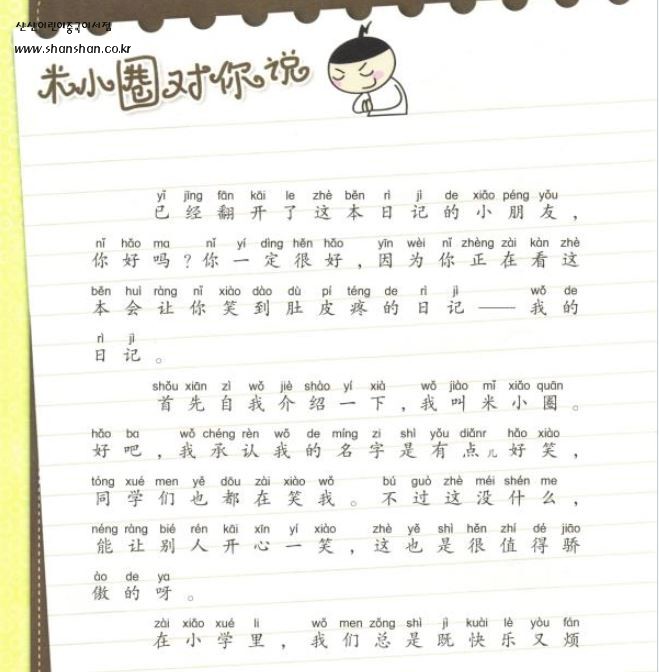 산산어린이중국어서점
www.shanshan.co.kr
米小圈对你说
yǐ jīng fān kāi le zhè běn rì jì de xiǎo péng yǒu
已经翻开了这本日记的小朋友，
nǐ hǎo ma nǐ yí dìng hěn hǎo yīn wèi nǐ zhèng zài kàn zhè
你好吗？你一定很好，因为你正在看这
běn huì ràng nǐ xiào dào dù pí téng de rì jì wǒ de
本会让你笑到肚皮疼的日记——我的
rì jì
日记。
shǒu xiān zì wǒ jiè shào yí xià wǒ jiào mǐ xiǎo quān
首先自我介绍一下，我叫米小圈。
hǎo ba wǒ chéng rèn wǒ de míng zi shì yǒu diǎnr hǎo xiào
好吧，我承认我的名字是有点儿好笑，
tóng xué men yě dōu zài xiào wǒ bú guò zhè méi shén me
同学们也都在笑我。不过这没什么，
néng ràng bié rén kāi xīn yí xiào zhè yě shì hěn zhí dé jiāo
能让别人开心一笑，这也是很值得骄
ào de ya
傲的呀。
zài xiǎo xué li wǒ men zǒng shì jì kuài lè yòu fán
在小学里，我们总是既快乐又烦